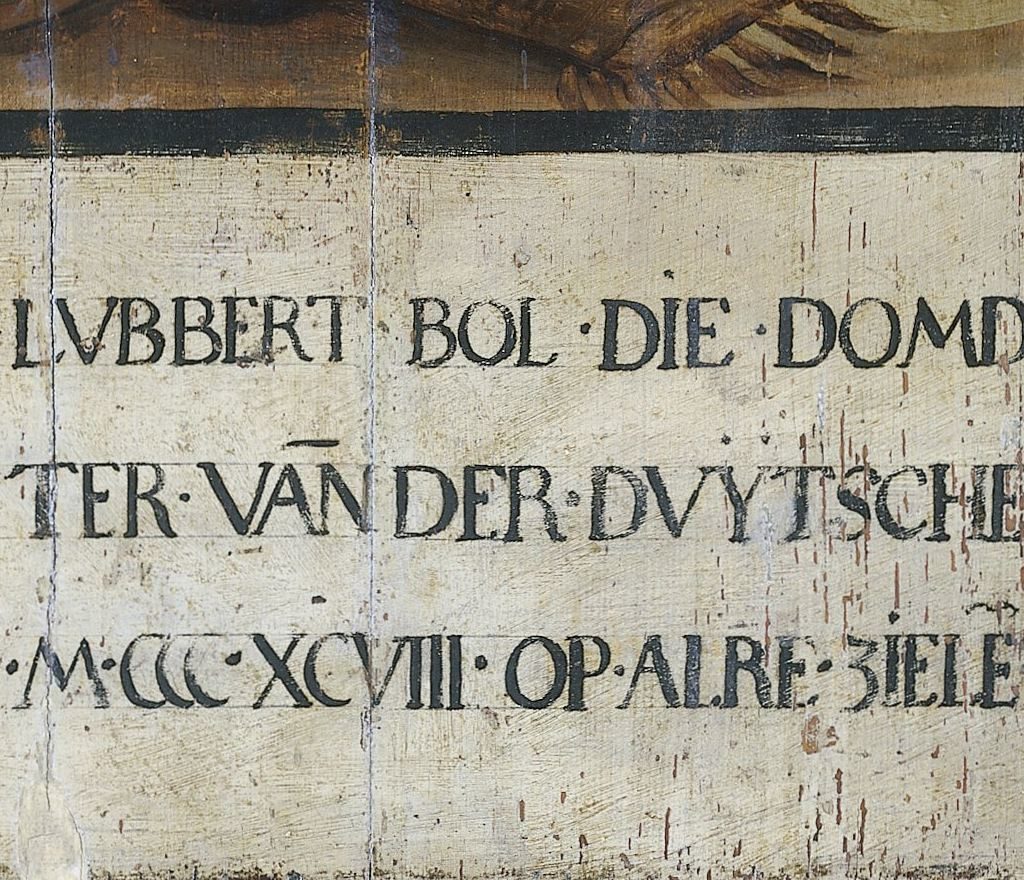 LVBBERT BOL · DIE · DOMD
TER · VAN̄DER · DVYTSCHE
· M · CCC · XCVIII · OP · ALRE · ZIELĒ